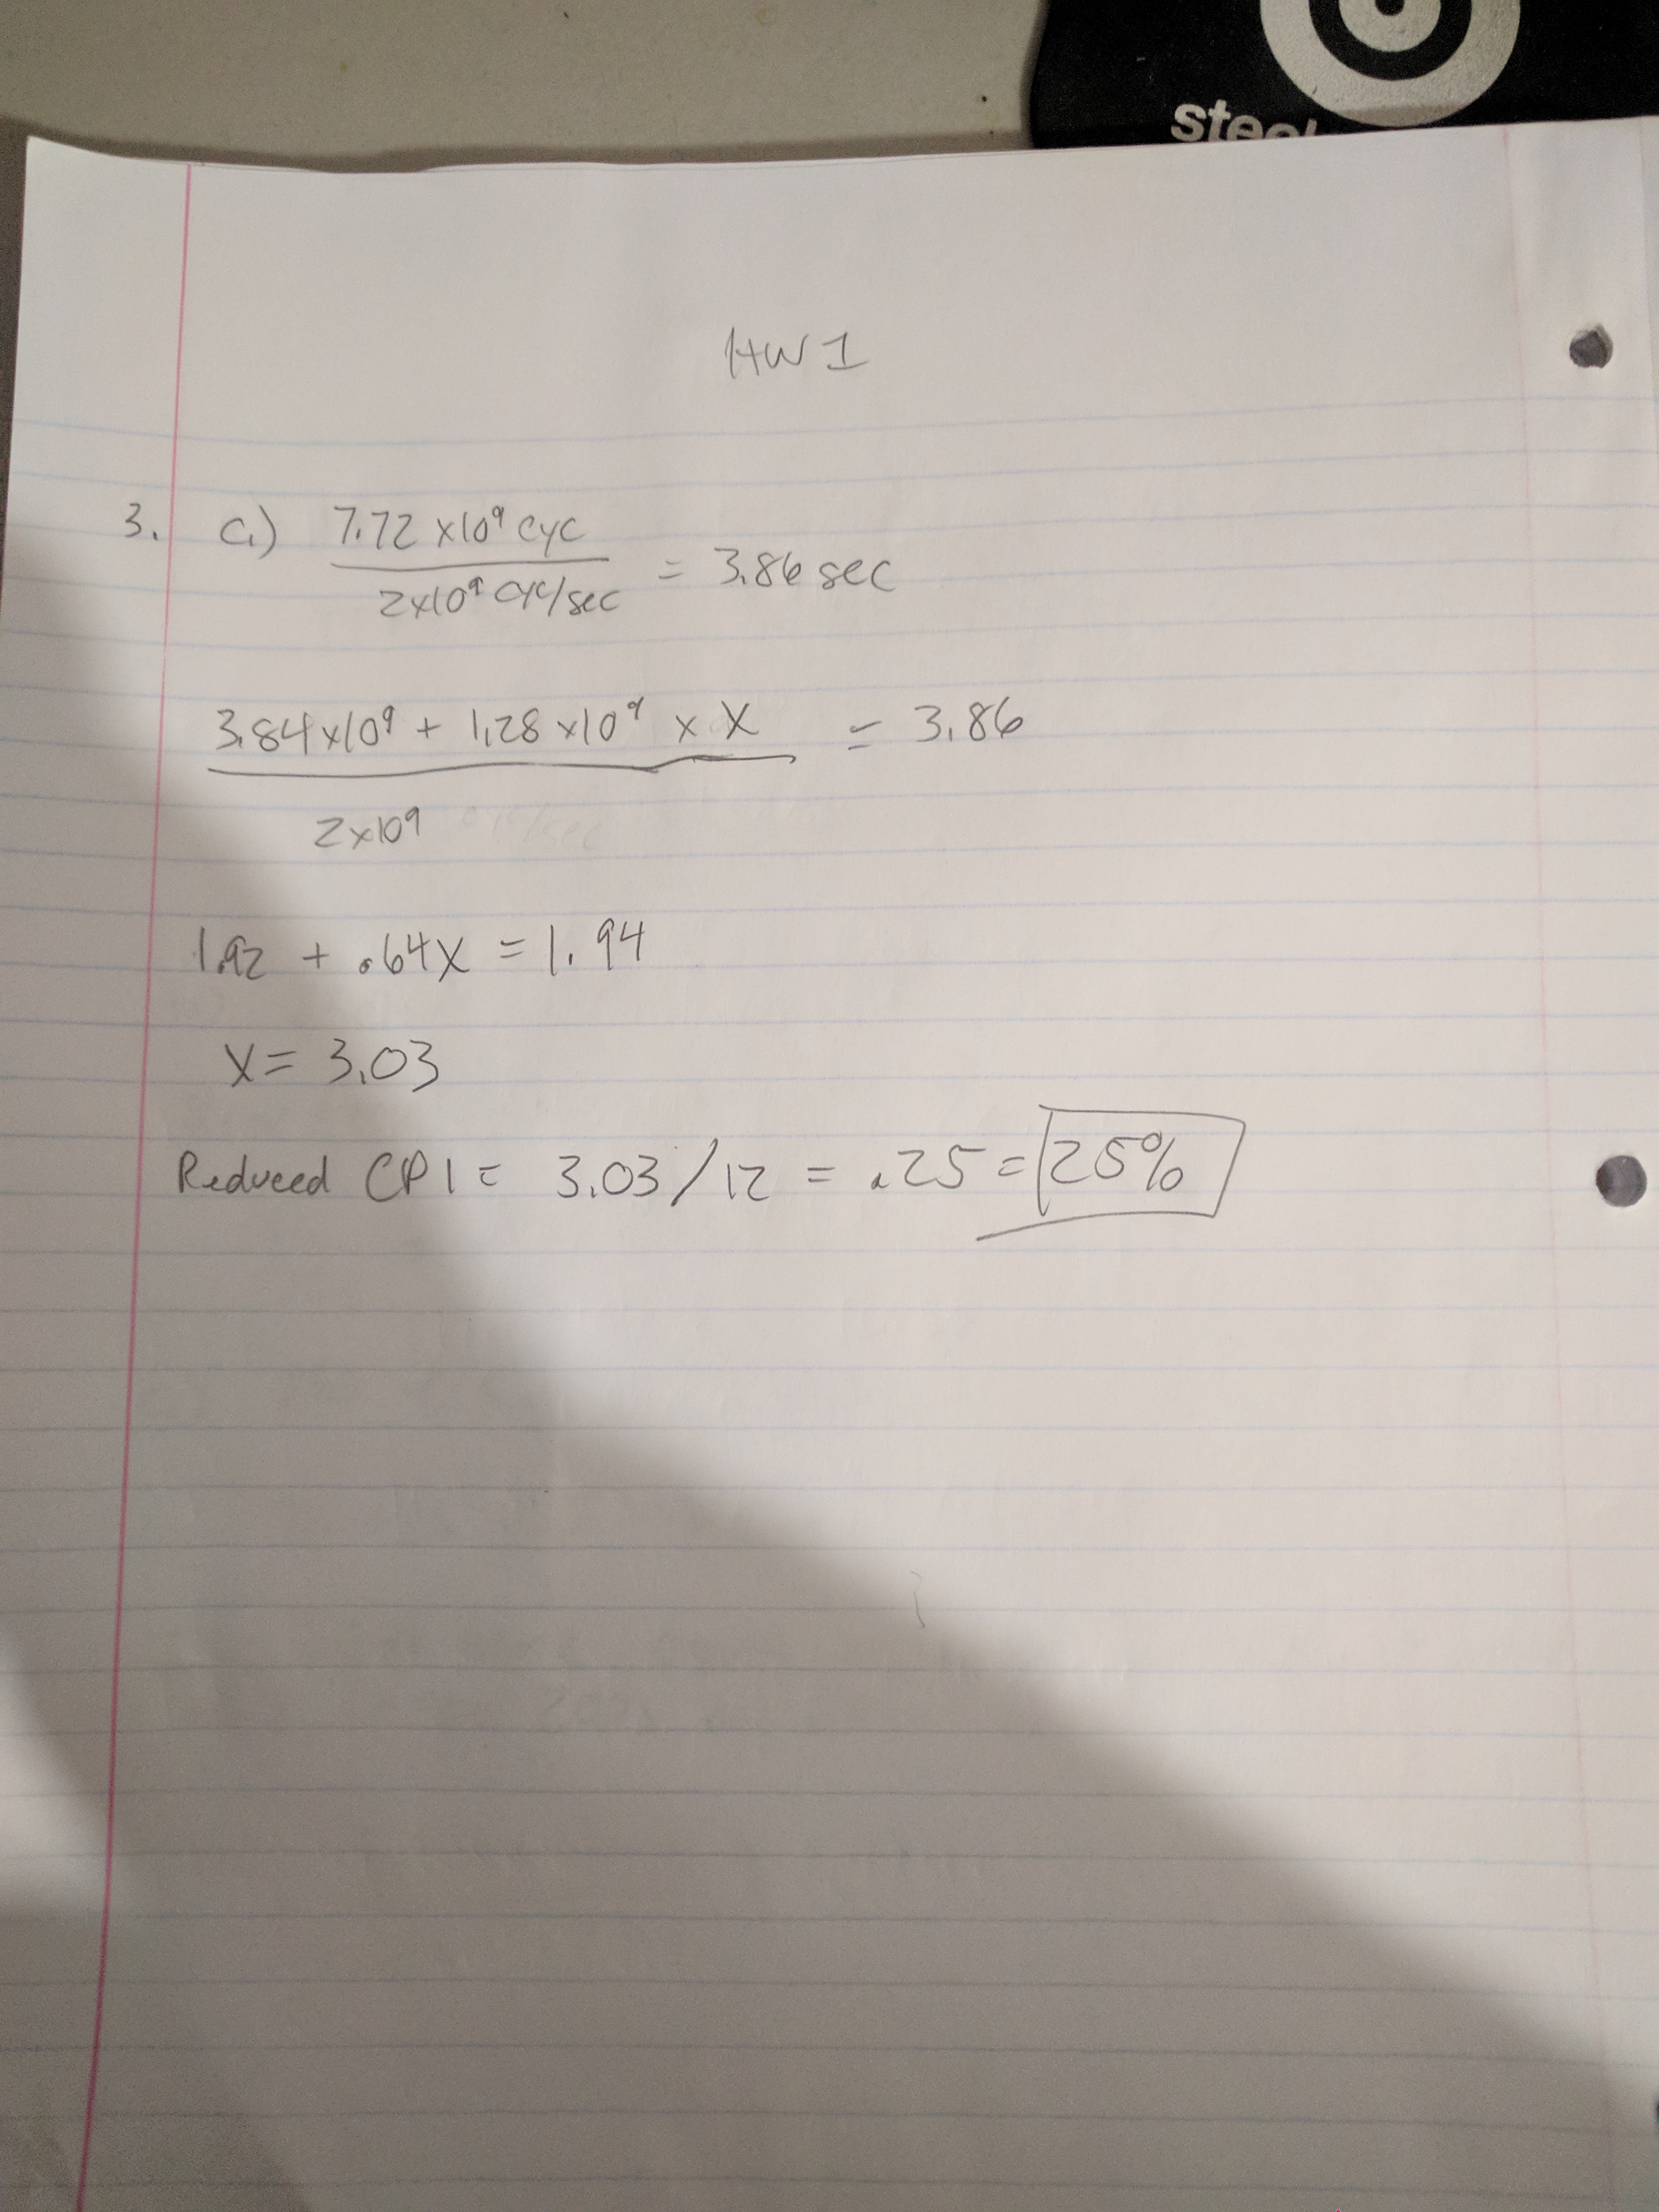 steel
HW 1
3. C.) 7.72 x10⁹ cyc
2x10⁹ cyc/sec
= 3.86 sec
3.84x10⁹ + 1.28 x10⁹ x X = 3.86
2x10⁹
1.92 + .64X = 1.94
X = 3.03
Reduced CPI = 3.03/12 = .25 = 25%